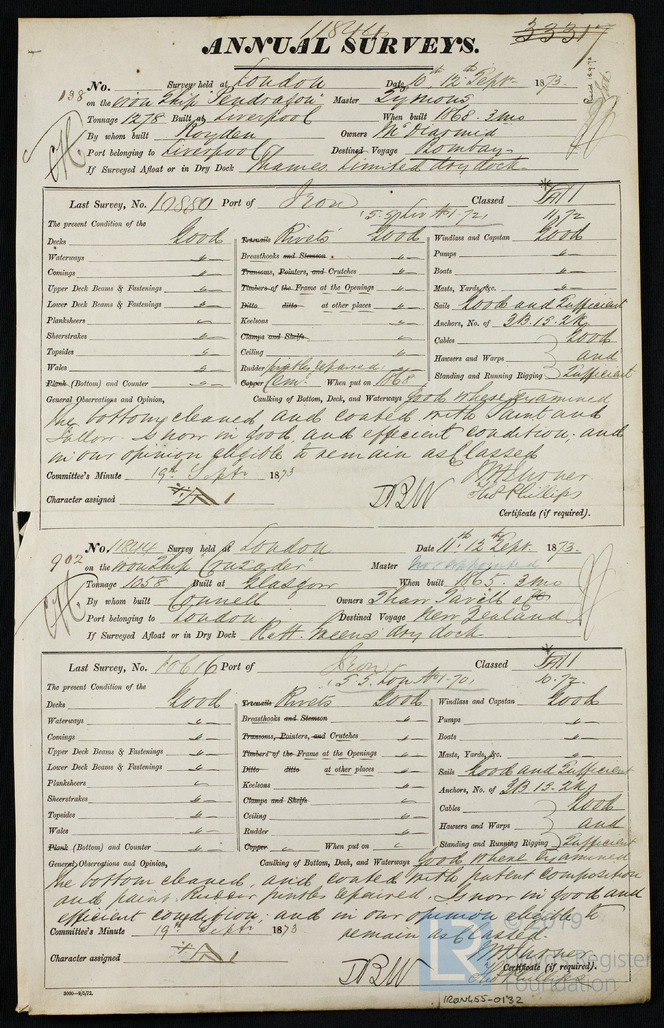 11844
33317
ANNUAL SURVEYS.
No. Survey held at London Date 6th 12th Sept. 1873.
138 on the iron Ship "Pendragon" Master Lymons
Tonnage 1278 Built at Liverpool When built 1868. 3 mo
By whom built Royden Owners McDiarmid
Port belonging to Liverpool Destined Voyage Bombay
If Surveyed Afloat or in Dry Dock Thames Limited dry dock
Last Survey, No. Port of Iron Classed
11,72
The present Condition of the
Decks Good Treenails Rivets Good Windlass and Capstan Good
Waterways " Breasthooks and Stemson " Pumps "
Comings " Transoms, Pointers, and Crutches " Boats "
Upper Deck Beams & Fastenings " Timbers of the Frame at the Openings " Masts, Yards, &c. "
Lower Deck Beams & Fastenings " Ditto ditto at other places " Sails Good and Sufficient
Planksheers " Keelsons " Anchors, No. of 3B. 1S. 2K
Sheerstrakes " Clamps and Shelfs Cables Good
Topsides " Ceiling " Hawsers and Warps and
Wales " Rudder pintles repaired Standing and Running Rigging Sufficient
Plank (Bottom) and Counter " Copper Cemt. When put on 1868
General Observations and Opinion, Caulking of Bottom, Deck, and Waterways Good where examined
The bottom cleaned and coated with Paint and
Tallow. Is now in good and efficient condition, and
in our opinion eligible to remain as Classed
Committee's Minute 19th Septr 1873
Character assigned
Thos Phillips
Certificate (if required).
No. 11844 Survey held at London Date 11th. 12th Sept. 1873.
902 on the iron Ship "Crusader" Master not appointed
Tonnage 1058 Built at Glasgow When built 1865. 3 mo
By whom built Connell Owners Shaw Savill & Co
Port belonging to London Destined Voyage New Zealand
If Surveyed Afloat or in Dry Dock dry dock
Last Survey, No. 10616 Port of Iron Classed
The present Condition of the
Decks Good Treenails Rivets Good Windlass and Capstan Good
Waterways " Breasthooks and Stemson " Pumps "
Comings " Transoms, Pointers, and Crutches " Boats "
Upper Deck Beams & Fastenings " Timbers of the Frame at the Openings " Masts, Yards, &c. "
Lower Deck Beams & Fastenings " Ditto ditto at other places " Sails Good and Sufficient
Planksheers " Keelsons " Anchors, No. of 3B. 1S. 2K
Sheerstrakes " Clamps and Shelfs Cables Good
Topsides " Ceiling " Hawsers and Warps and
Wales " Rudder " Standing and Running Rigging Sufficient
Plank (Bottom) and Counter " Copper " When put on "
General Observations and Opinion, Caulking of Bottom, Deck, and Waterways Good where examined
The bottom cleaned, and coated with patent composition
and paint. Rudder pintles repaired. Is now in good and
efficient condition; and in our opinion eligible to
remain as Classed.
Committee's Minute 19th Septr 1873
Character assigned
Thos Phillips
Certificate (if required).
© 2019
Lloyd's Register
Foundation
IRON455-0132